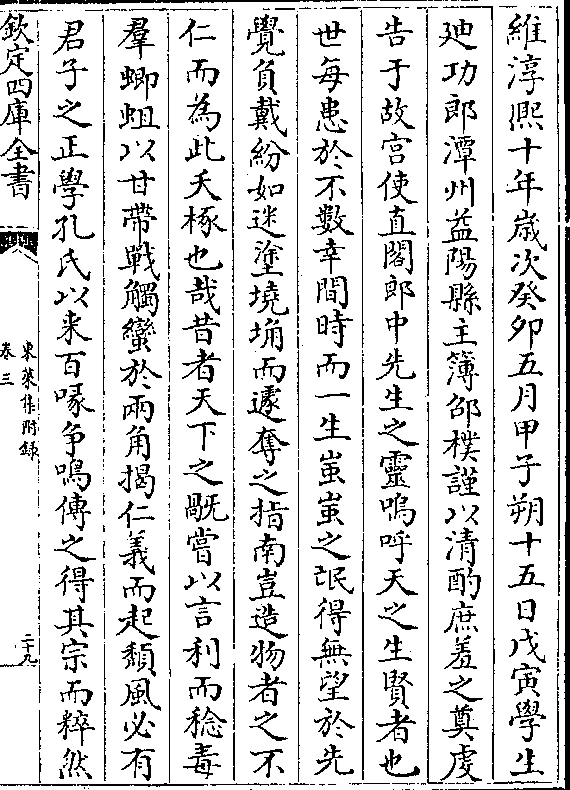 維淳熙十年歲次癸卯五月甲子朔十五日戊寅學生
廸功郎潭州益陽縣主簿邵樸謹以清酌庶羞之奠虔
告于故宫使直閣郎中先生之靈嗚呼天之生賢者也
世每患於不數幸間時而一生蚩蚩之氓得無望於先
覺負戴紛如迷塗墝埆而遽奪之指南豈造物者之不
仁而為此夭椓也哉昔者天下之翫嘗以言利而稔毒
羣蝍蛆以甘帶戰觸蠻於兩角揭仁義而起頽風必有
君子之正學孔氏以来百喙争鳴傳之得其宗而粹然
欽定四庫全書
東萊集附録
卷三
二十九